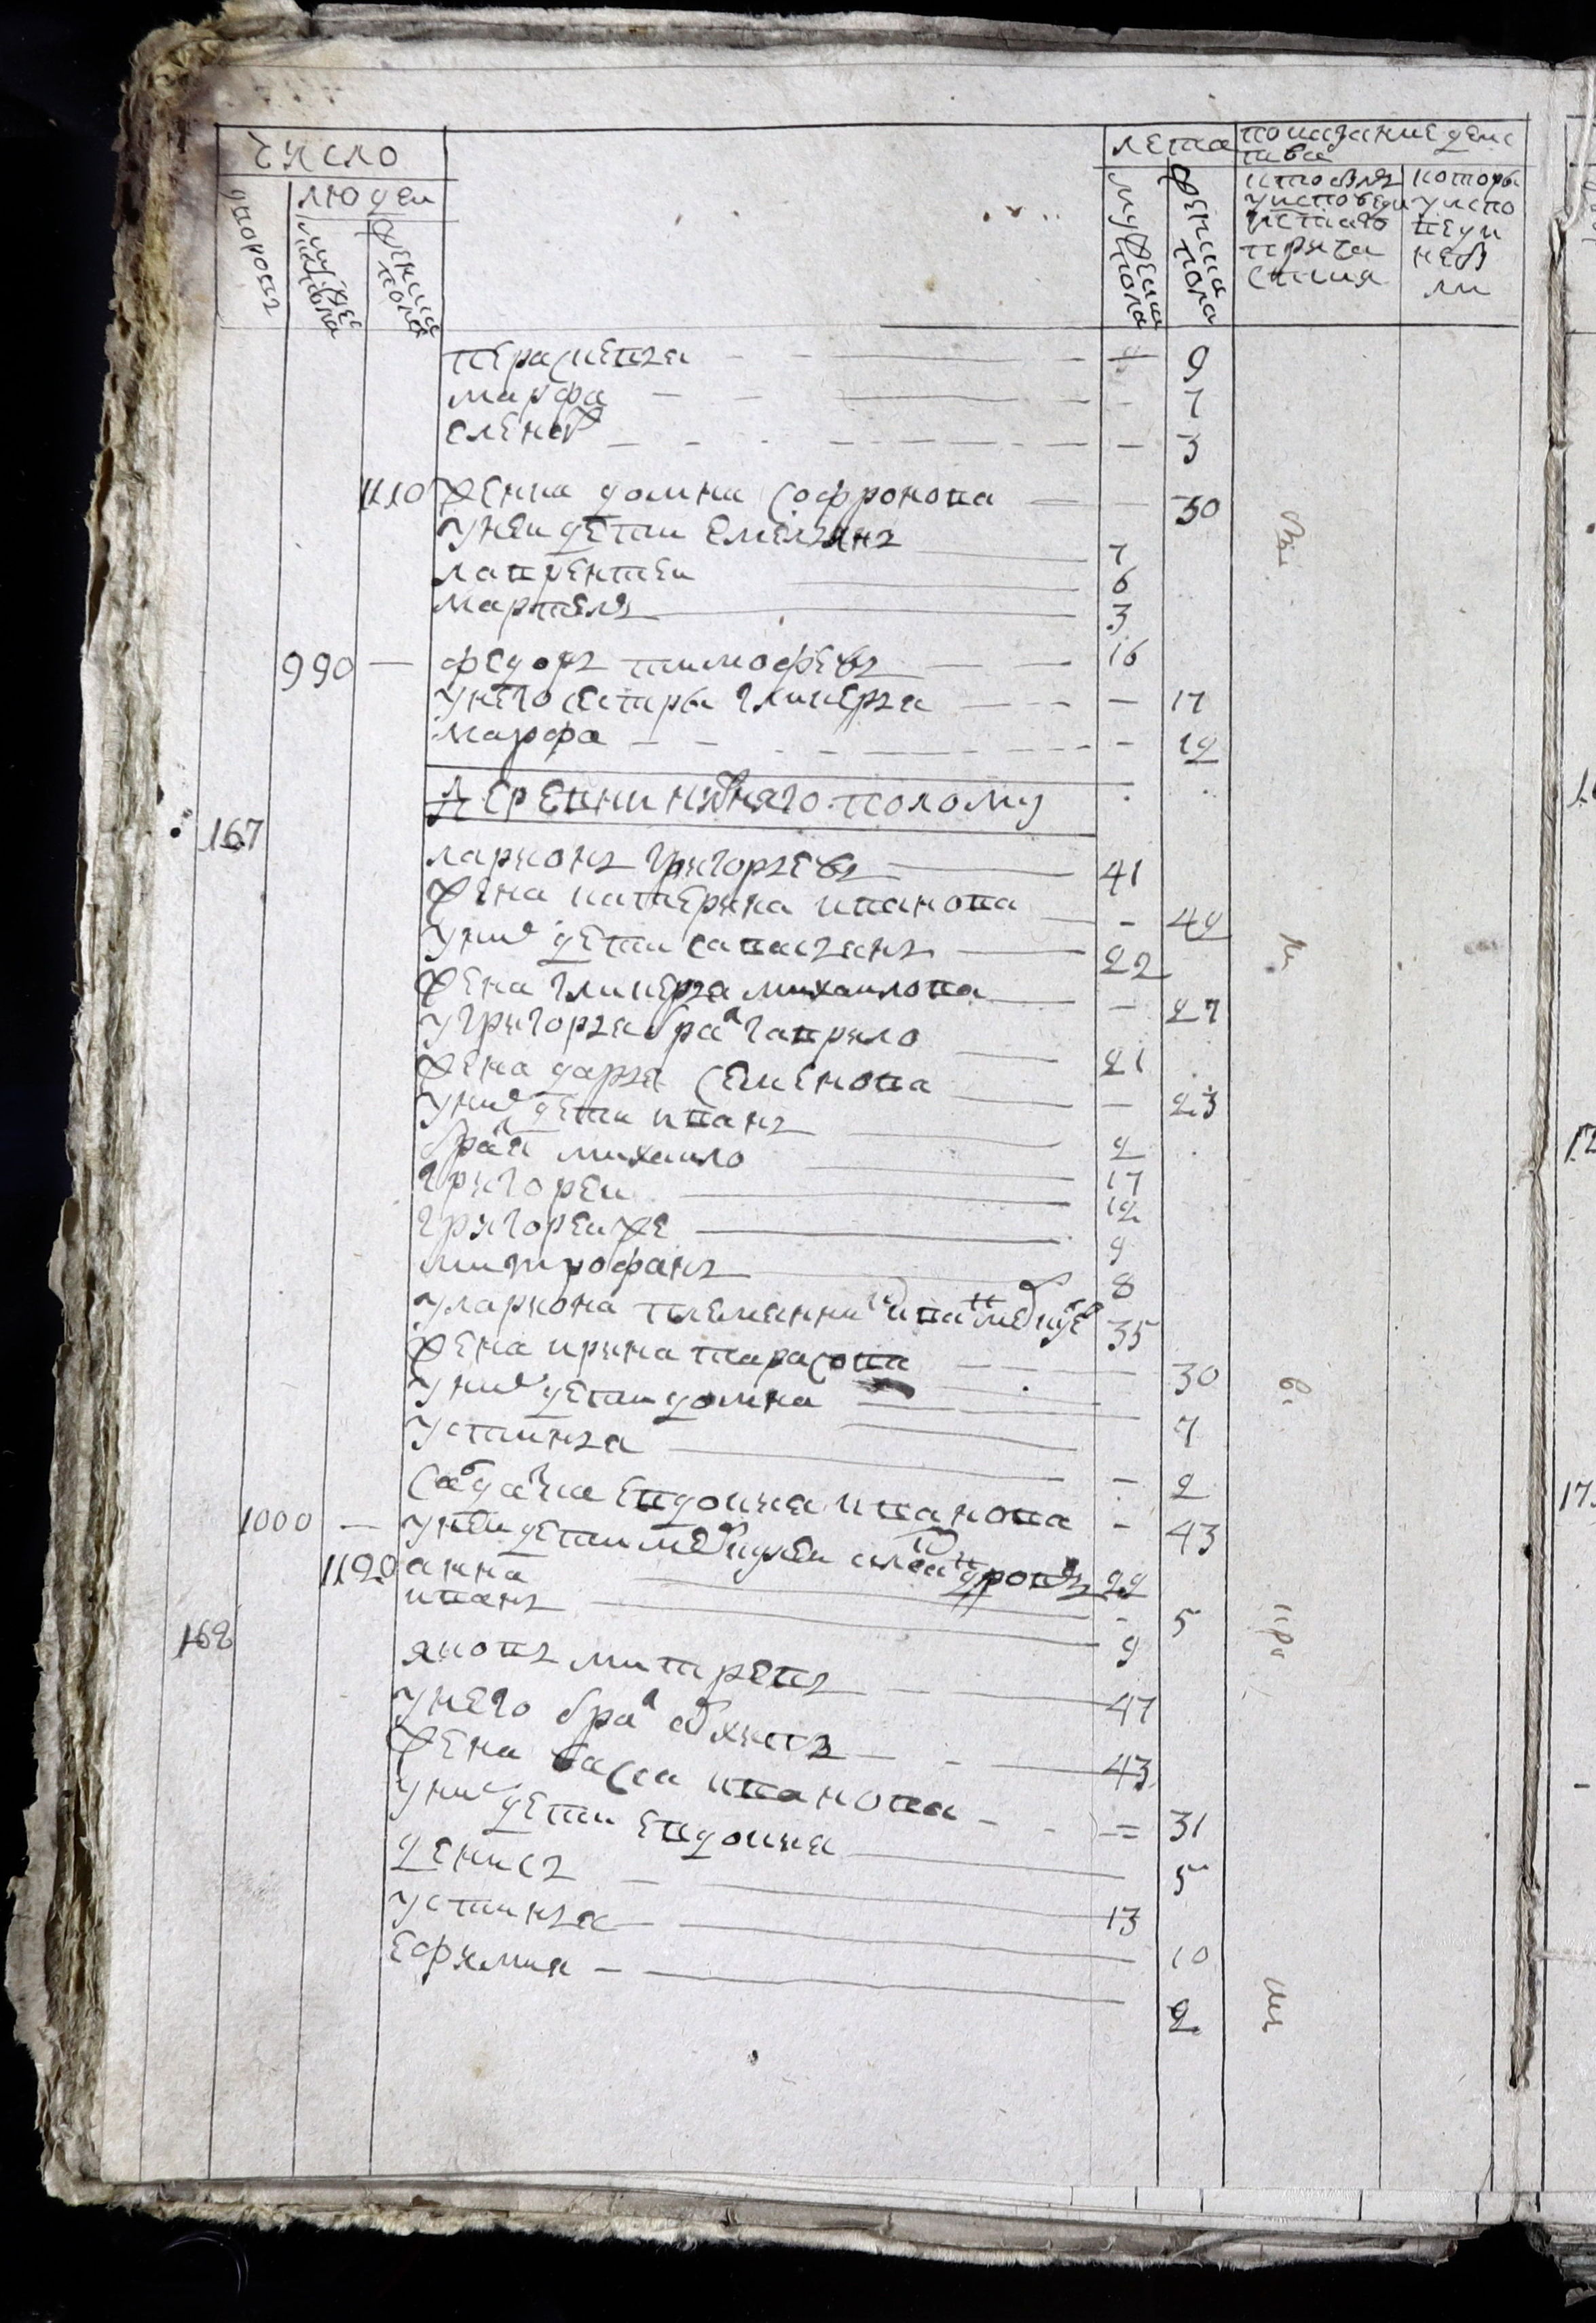 число
людеи
лета
показание деис
тва
дворовъ
мужес
ка пола
женска
пола
мужеска
пола
женска
пола
кто былъ
у исповеди
и стаго
прича
стия
которы
у испо
веди
небы
ли
Парасковья - - 9
марфа - - 7
елена - - 3
1110 жена домна софронова - 30
у неи дети емельянъ 7
лаврентеи 6
мартемъ 3
990 - федоръ тимофеевъ - - 16
у него сестры гликерья - - 17
марфа - - 12
деревни нижняго полому
167
ларионъ григорьевъ 41
жена катерина иванова - 42
у нихъ дети савасьянъ 22
жена гликерья михаилова - 27
у григорья бра гаврило 21
жена дарья семенова - 23
у нихъ дети иванъ 2
братя михаило 17
григореи 12
григореи же 9
митрофанъ 8
у лариона племянни иванъ 35
жена ирина тарасова 30
у нихъ дети домна 7
устинья - 2
салдатка евдокия иванова - 43
1000 - у неи дети 22
1120 анна - 5
иванъ 9
168
яковъ митревъ 47
у него бра архипъ 43
жена васса иванова - - = 31
у нихъ дети евдокия 5
денисъ 13
устинья 10
ефимия - 2